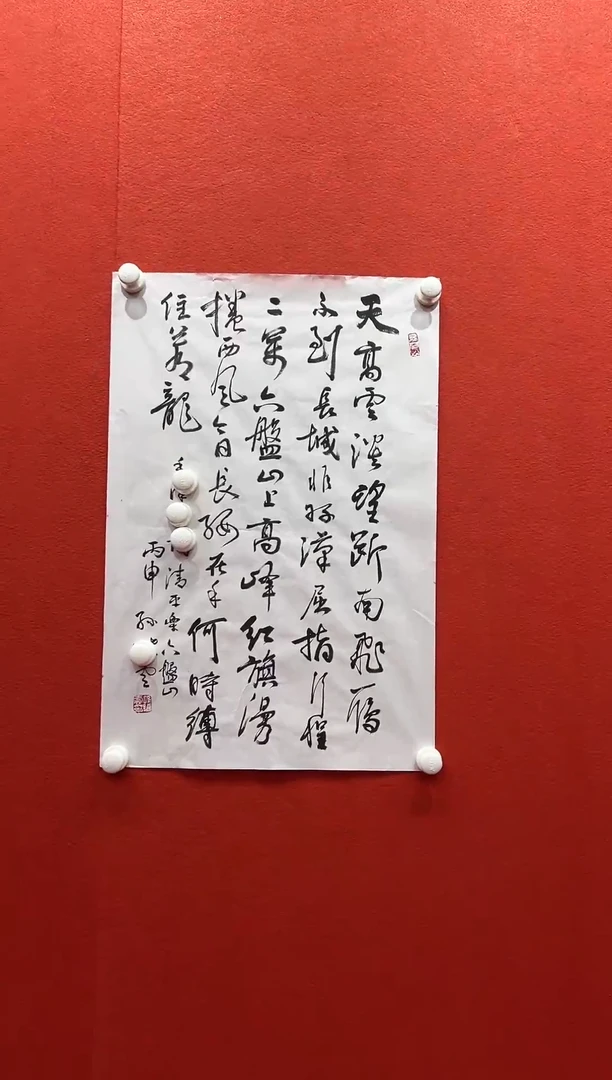 天高雲淡望断南飛雁
不到長城非好漢屈指行程
二萬六盤山上高峰紅旗漫
捲西風今日長纓在手何時縛
住蒼龍
毛 清平樂六盤山
丙申 孫 雲